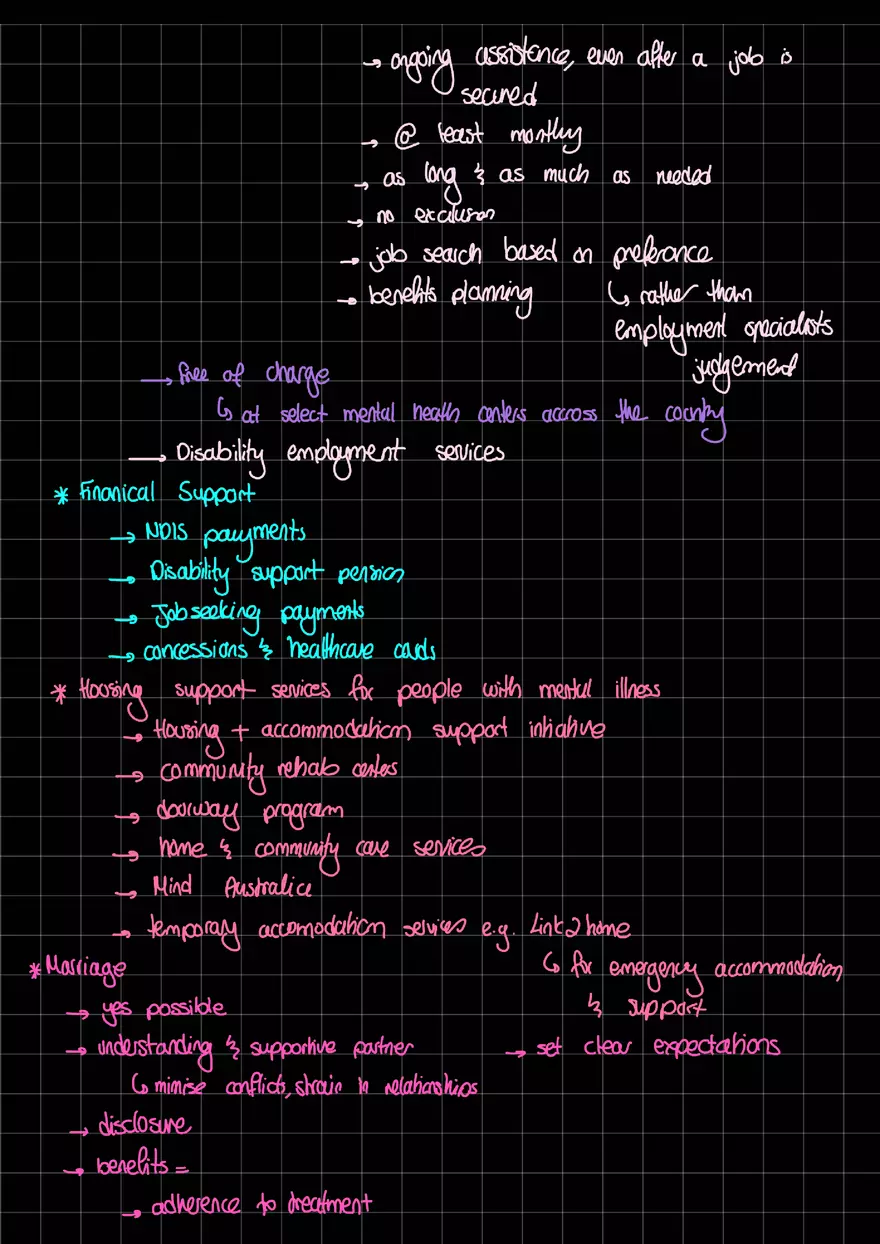 → ongoing assistence, even after a job is
secured
→ @ least monthly
→ as long & as much as needed
→ no exclusion
→ job search based on preferance
→ benefits planning ↳ rather than
employment specialists
judgement
→ free of charge
↳ at select mental health centers accross the country
→ Disability employment services
* Finanical Support
→ NDIS payments
→ Disability support pension
→ Jobseeking payments
→ concessions & healthcare cards
* Housing support services for people with mental illness
→ Housing + accommodation support initiative
→ community rehab centers
→ doorway program
→ home & community care services
→ Mind Australia
→ temporary accomodation services e.g. Link2home
↳ for emergency accommodation
& support
* Marriage
→ yes possible
→ understanding & supportive partner → set clear expectations
↳ minise conflicts, strain in relationships
→ disclosure
→ benefits =
→ adherence to treatment